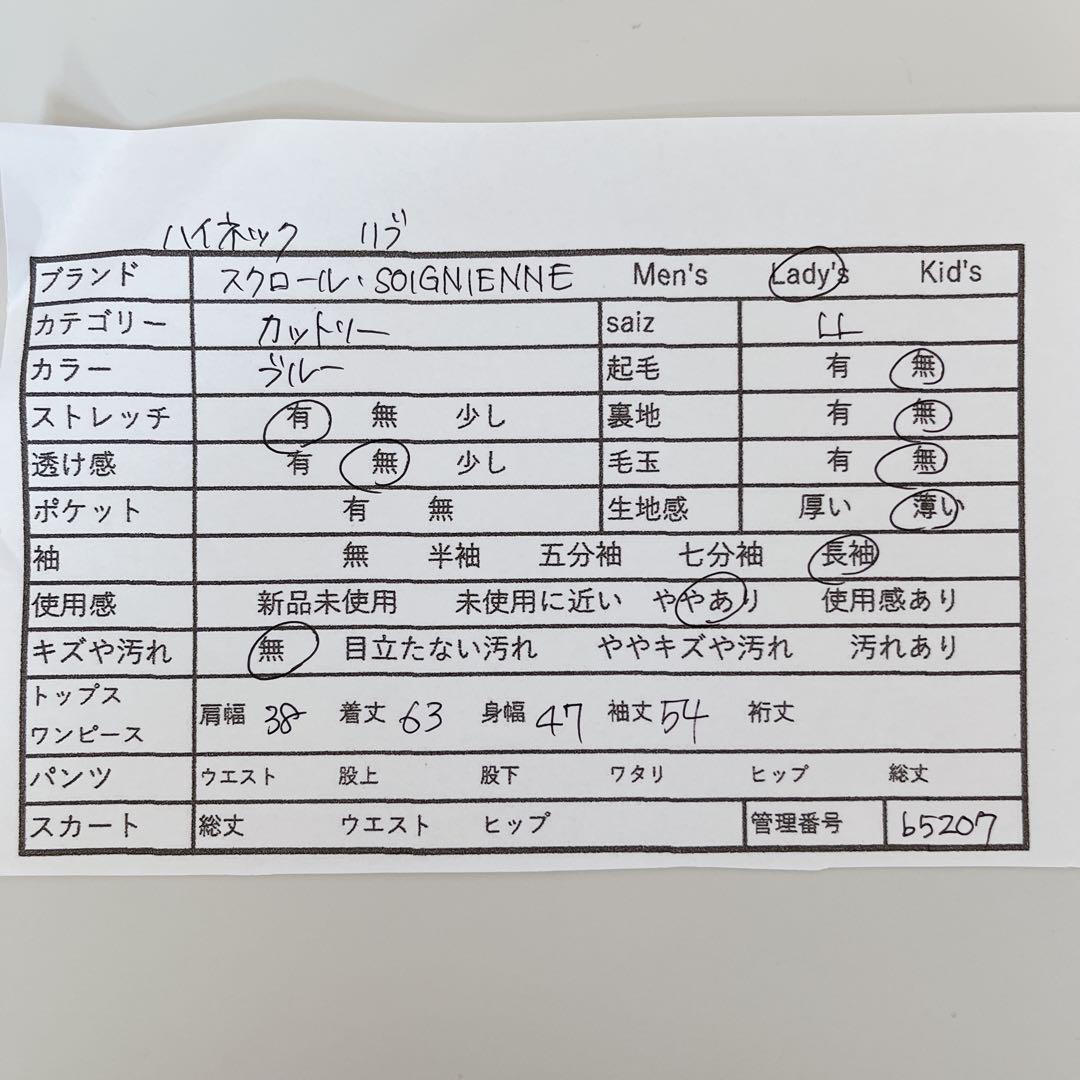 ハイネック リブ
ブランド スクロール・SOIGNIENNE Men's Lady's Kid's
カテゴリー カットソー saiz LL
カラー ブルー 起毛 有 無
ストレッチ 有 無 少し 裏地 有 無
透け感 有 無 少し 毛玉 有 無
ポケット 有 無 生地感 厚い 薄い
袖 無 半袖 五分袖 七分袖 長袖
使用感 新品未使用 未使用に近い ややあり 使用感あり
キズや汚れ 無 目立たない汚れ ややキズや汚れ 汚れあり
トップス
ワンピース 肩幅 38 着丈 63 身幅 47 袖丈 54 裄丈
パンツ ウエスト 股上 股下 ワタリ ヒップ 総丈
スカート 総丈 ウエスト ヒップ 管理番号 b5207